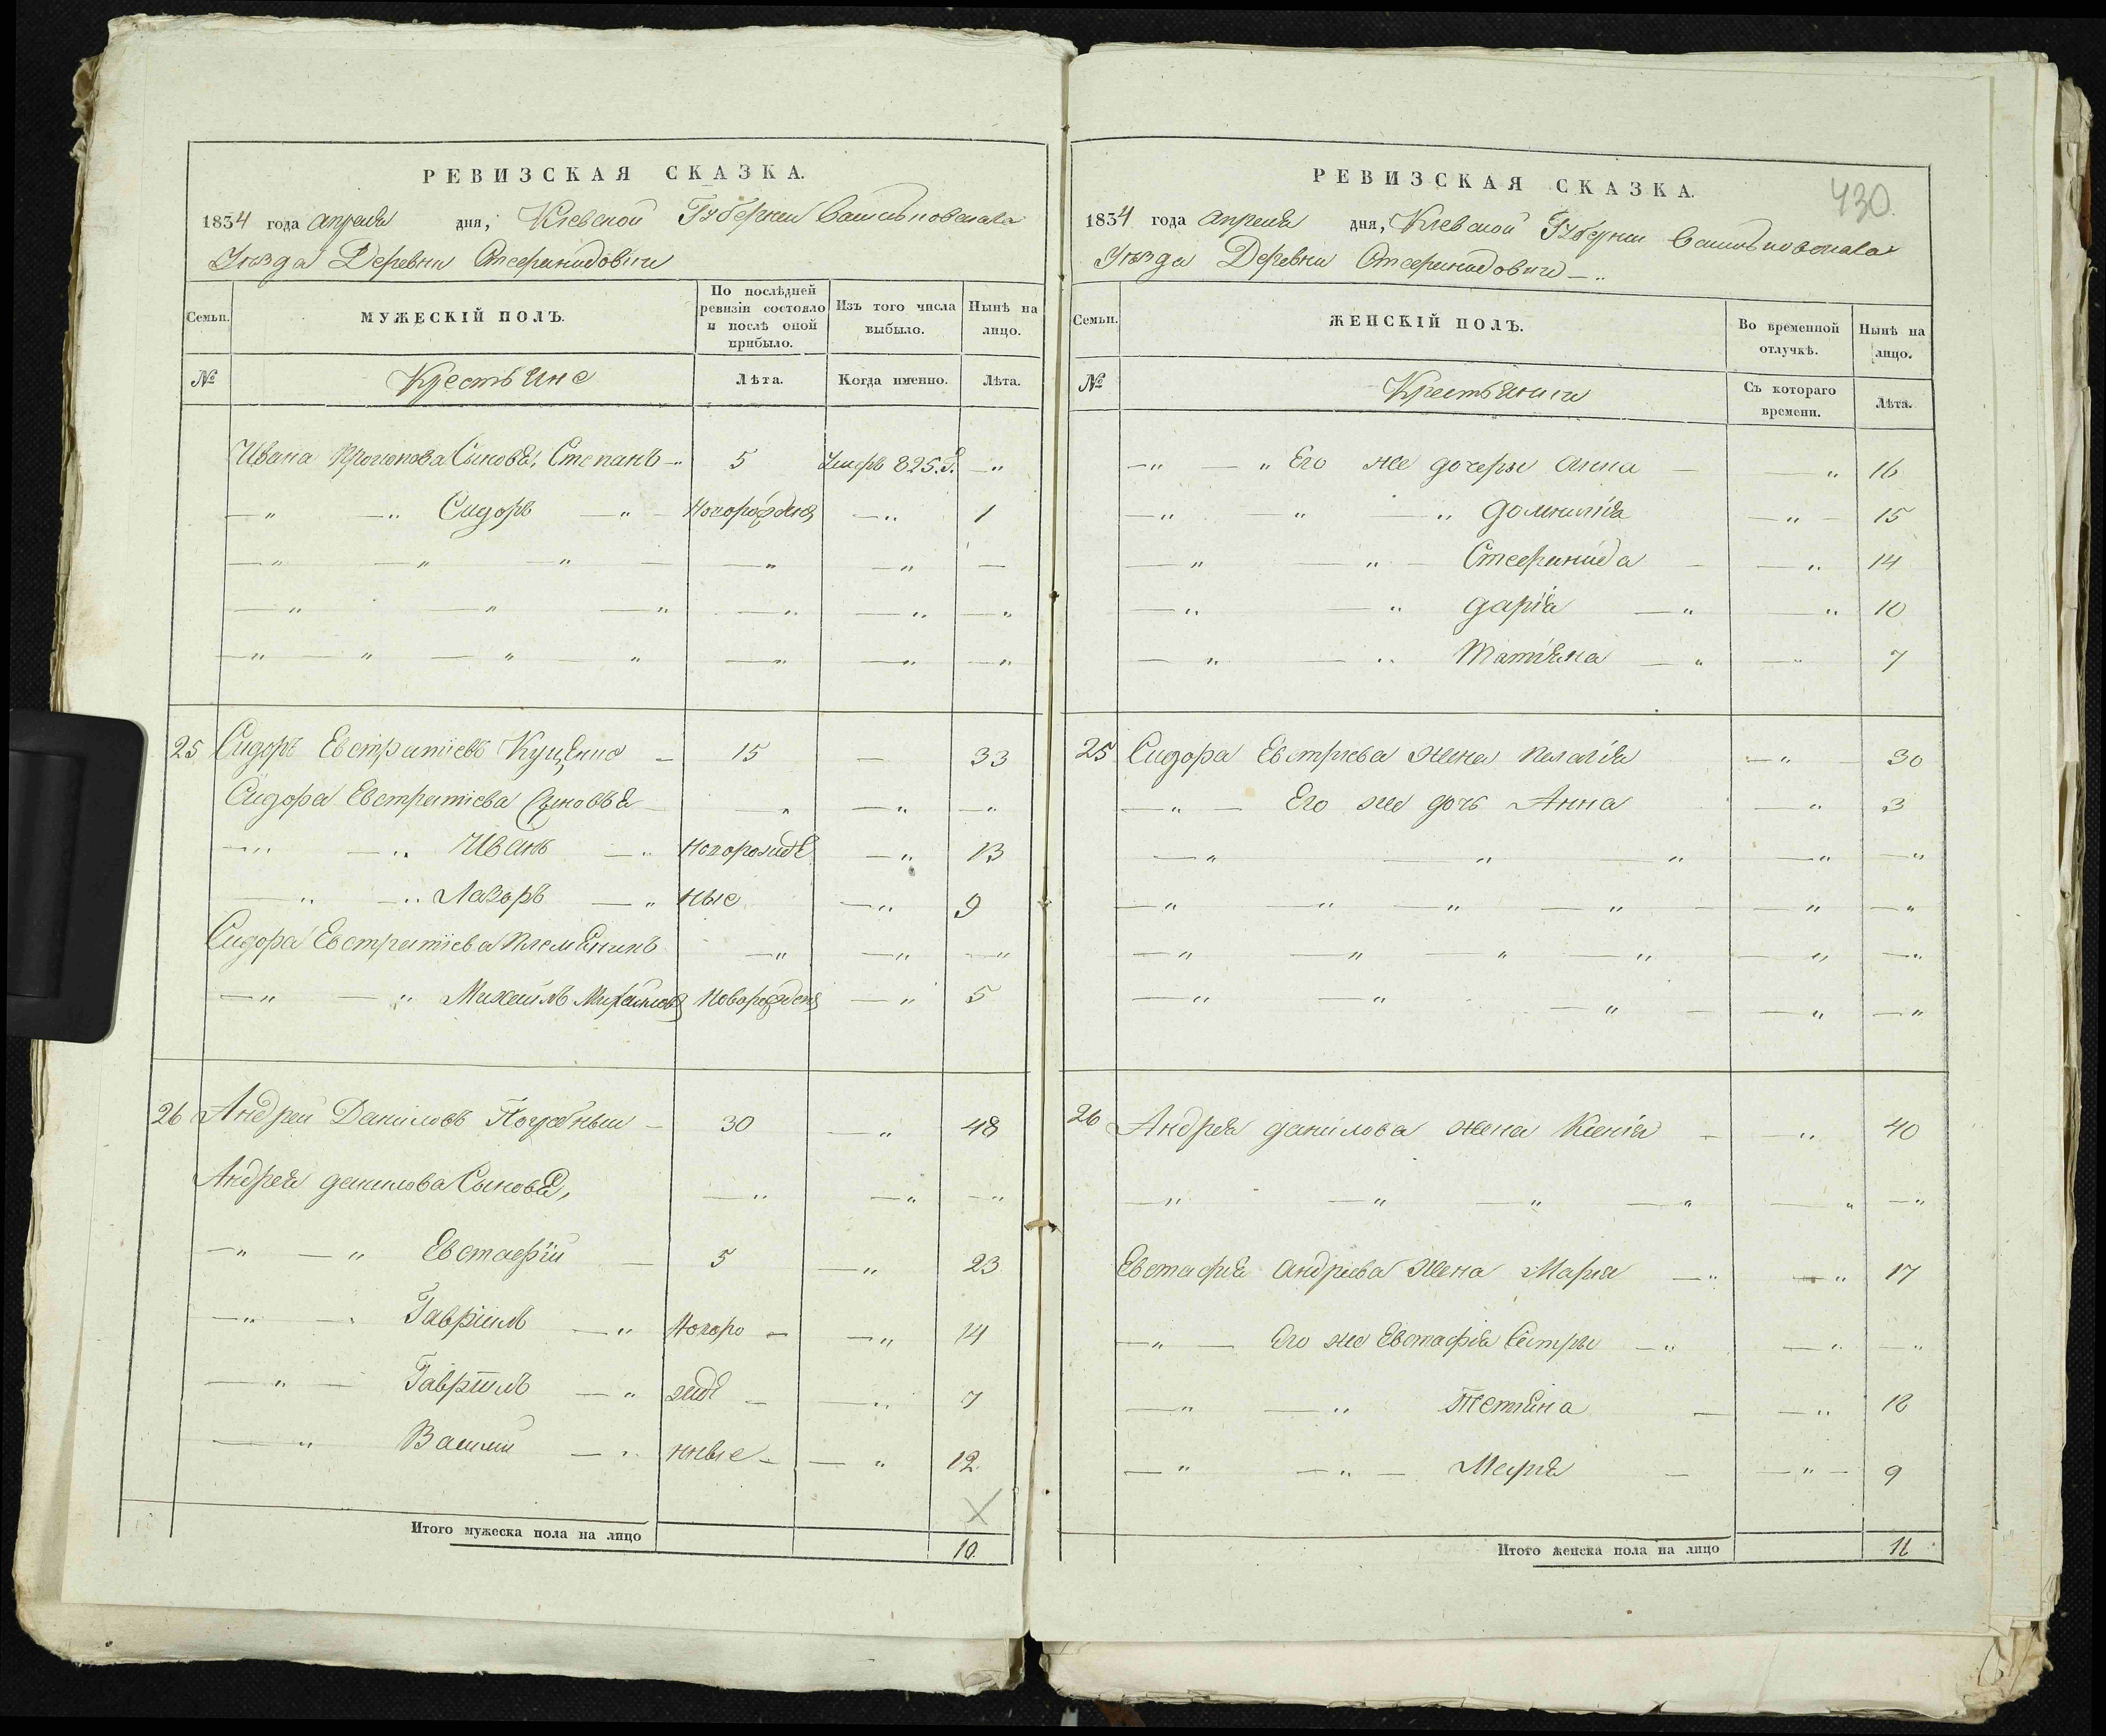 РЕВИЗСКАЯ СКАЗКА.
1834 года апреля дня, Киевской Губернии Васильковскаго
Уезда Деревни
Семьи. МУЖЕСКІЙ ПОЛЪ. По послѣдней ревизіи состояло и послѣ оной прибыло. Изъ того числа выбыло. Нынѣ на лицо.
№ Крестьяне Лѣта. Когда именно. Лѣта.
Ивана Прокопова Сыновья, Степанъ 5 Умеръ 825.г.
Сидоръ 1
25 Сидоръ Евстратіевъ Куценко 15 — 33
Сидора Евстратіева Сыновья
Иванъ новорожде 13
Лазоръ ные 9
Сидора Евстратіева племянникъ
Михаилъ Михайловъ новорожден 5
26 Андрей Даниловъ 30 48
Андрея данилова Сыновья,
Евстафій 5 23
Гавріилъ новоро 14
Гавріилъ жде 7
Василій нные 12
Итого мужеска пола на лицо 10.
430.
РЕВИЗСКАЯ СКАЗКА.
1834 года апреля дня, Киевской Губернии Васильковскаго
Уезда Деревни
Семьи. ЖЕНСКІЙ ПОЛЪ. Во временной отлучкѣ. Нынѣ на лицо.
№ Крестьянки Съ котораго времени. Лѣта.
Его же дочери анна 16
домникія 15
14
дарія 10
Татіяна 7
25 Сидора Евстріева жена пелагія 30
Его же дочь Анна 3
26 Андрея данилова жена Ксенія 40
Евстафія андреева жена Марія 17
Его же Евстафія Сестры
12
Марія 9
Итого женска пола на лицо 11